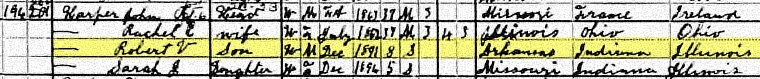 Harper John Head W M 1863 37 M 3 Missouri France Ireland
— Rachel E wife W F July 1862 37 M 3 4 3 Illinois Ohio Ohio
— Robert V Son W M Dec 1891 8 S Arkansas Indiana Illinois
— Sarah J Daughter W F Dec 1894 5 S Missouri Indiana Illinois